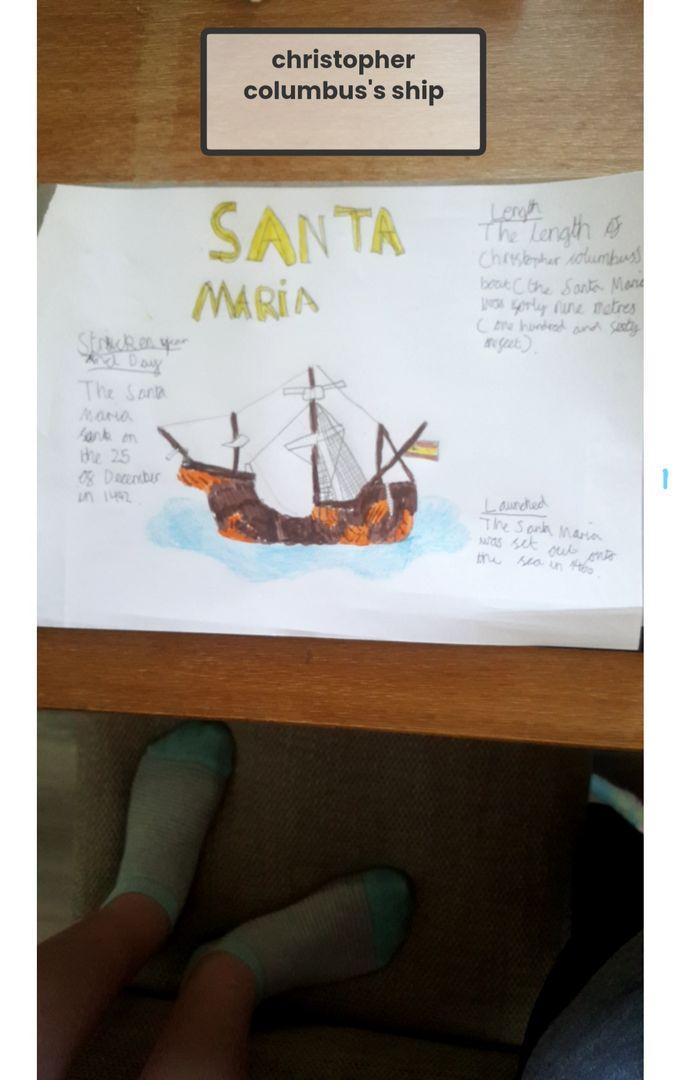 christopher
columbus's ship
SANTA
MARIA
Length
The Length of
Christopher columbus's
boat (the Santa Maria
was forty nine metres
(one hundred and sixty
feet).
Struck on year
And Day
The Santa
Maria
sank on
the 25
of December
in 1492
Launched
The Santa Maria
was set out onto
the sea in 1460.